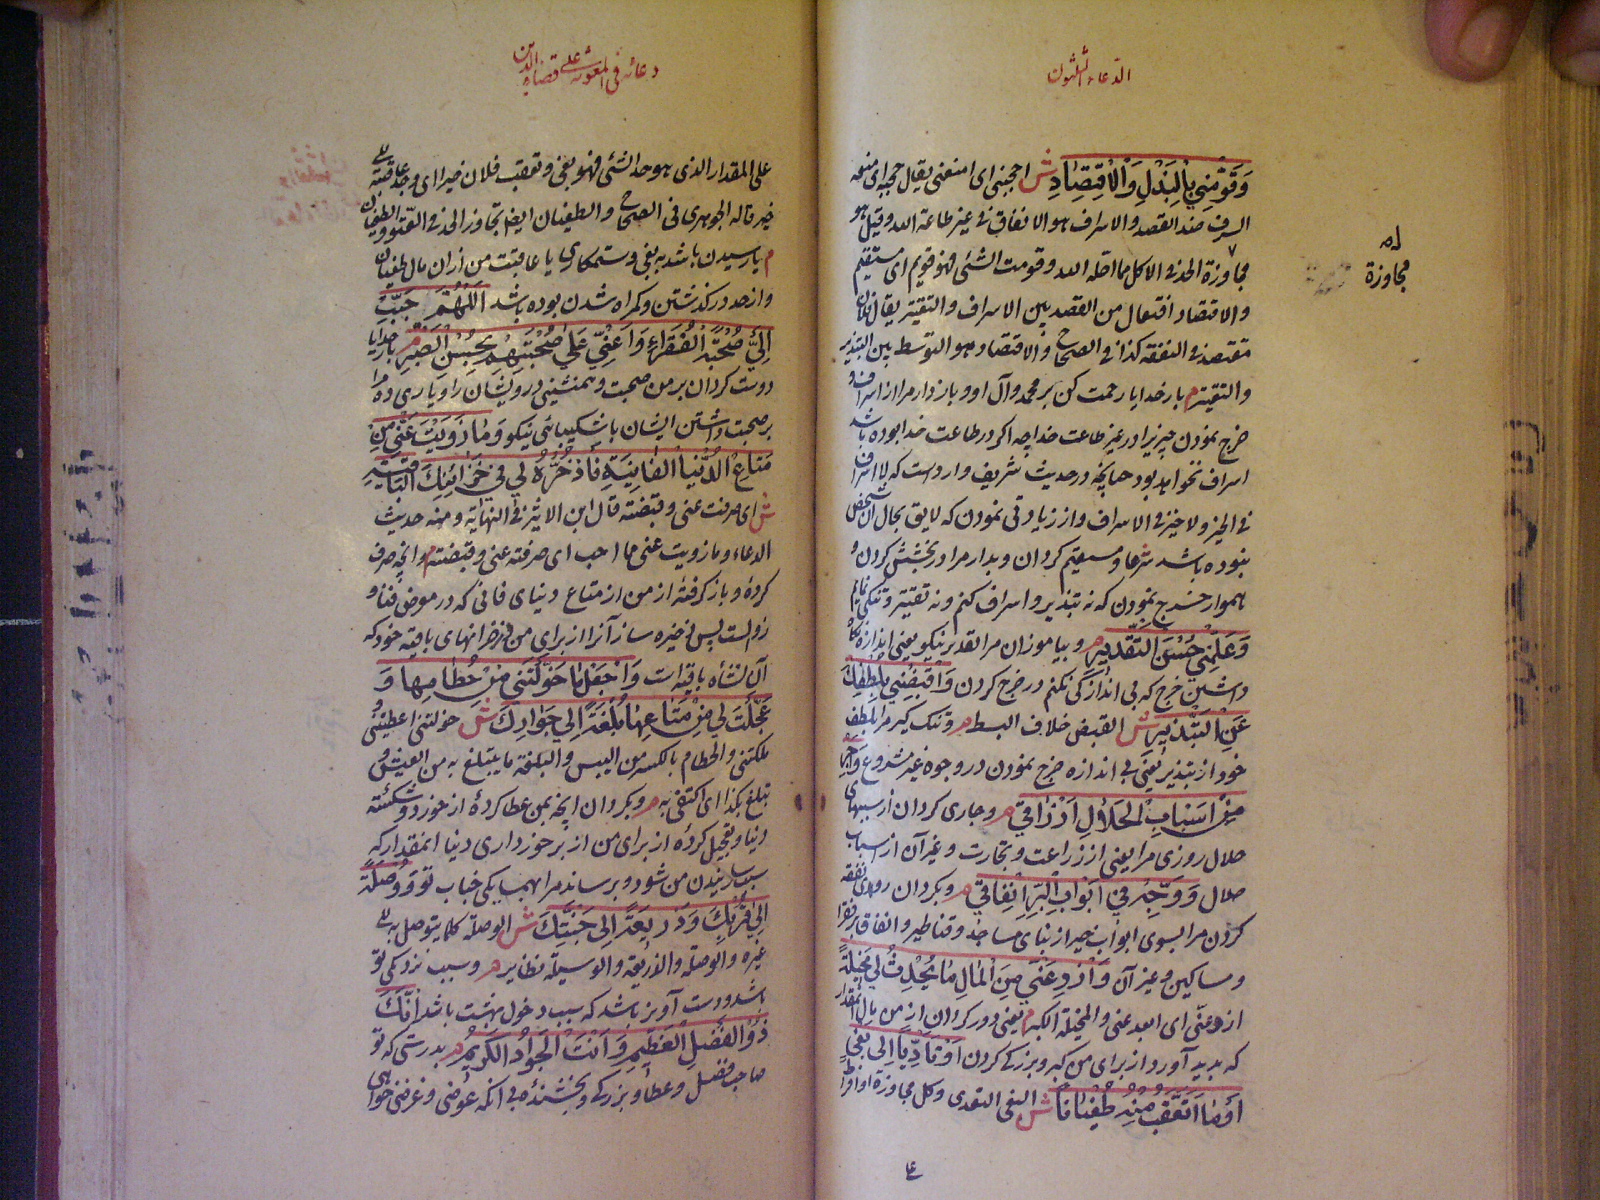 الدعاء الثلثون
وَقَوِّمْنِي بِالْبَذْلِ وَالْاِقْتِصَادِ ش احجبنی ای امنعنی یقال حجبه ای منعه
السرف ضد القصد والاسراف هو الانفاق فی غیر طاعة الله وقیل هو
مجاوزة الحد فی الاکل مما احله الله وقومت الشئ فهو قویم ای مستقیم
له
مجاوزة
والاقتصاد افتعال من القصد بین الاسراف والتقتیر یقال فلان
مقتصد فی النفقه کذا فی الصحاح والاقتصاد هو التوسط بین التبذیر
والتقتیر م بار خدایا رحمت کن بر محمد وآل او وباز دار مرا از اسراف و
خرج نمودن چیزی را در غیر طاعت خدا چه اکر در طاعت خدا بوده باشد
اسراف نخواهد بود چنانچه در حدیث شریف وارد است که لا اسراف
فی الخیر ولا خیر فی الاسراف واز زیادتی نمودن که لایق بحال آن شخص
نبوده باشد شرعا ومستقیم کردان وبدار مرا در بخشش کردن و
هموار خرج نمودن که نه تبذیر واسراف کنم ونه تقتیر وتنکی نمایم
وَعَلِّمْنِي حُسْنَ التَّقْدِيرِ م وبیاموزان مرا تقدیر نیکو یعنی اندازه نکاه
داشتن خرج که بی اندازکی نکنم در خرج کردن وَاقْبِضْنِي بِلُطْفِكَ
عَنِ التَّبْذِيرِ ش القبض خلاف البسط م وتنک کیر مرا بلطف
خود از تبذیر یعنی بی اندازه خرج نمودن در وجوه غیر مشروع وَاَجْرِ
مِنْ اَسْبَابِ الْحَلَالِ اَرْزَاقِي م وجاری کردان از سببهای
حلال روزی مرا یعنی از زراعت وتجارت وغیر آن از اسباب
حلال وَوَجِّهْ فِي اَبْوَابِ الْبِرِّ اِنْفَاقِي م وبکردان روی نفقه
کردن مرا بسوی ابواب خیر از بنای مساجد وقناطیر وانفاق بر فقرا
ومساکین وغیر آن وَازْوِ عَنِّي مِنَ الْمَالِ مَا يُحْدِثُ لِي مَخِيلَةً
ازو عنّی ای ابعد عنی والمخیلة الکبر م یعنی دور کردان از من مال آنمقدار
که پدید آورد از برای من کبر وبزرکی کردن اَوْ تَأَدِّيًا اِلَى بَغْيٍ
اَوْ مَا اَتَعَقَّبُ مِنْهُ طُغْيَانًا ش البغی التعدی وکل مجاوزة وافراط
ع
دعائه فی المعونة علی قضاء الدین
علی المقدار الذی هو حد الشئ فهو بغی وتعقب فلان خیرا ای وجد عاقبته الی
خیر قاله الجوهری فی الصحاح والطغیان ایضا تجاوز الحد فی العتو والطغیان
م یا رسیدن باشد به بغی وستمکاری یا عاقبت من از ان مال طغیان
واز حد درکذشتن وکمراه شدن بوده باشد اَللّٰهُمَّ حَبِّبْ
اِلَيَّ صُحْبَةَ الْفُقَرَاءِ وَاَعِنِّي عَلَى صُحْبَتِهِمْ بِحُسْنِ الصَّبْرِ م بار خدایا
دوست کردان بر من صحبت وهمنشینی درویشان را ویاری ده مرا
بر صحبت داشتن ایشان با شکیبائی نیکو وَمَا زَوَيْتَ عَنِّي مِنْ
مَتَاعِ الدُّنْيَا الْفَانِيَةِ فَاذْخَرْهُ لِي فِي خَزَائِنِكَ الْبَاقِيَةِ
ش ای صرفت عنی وقبضته قال ابن الاثیر فی النهایة ومنه حدیث
الدعاء وما زویت عنی مما احب ای صرفته عنی وقبضته م وانچه صرف
کردهٔ وباز کرفتهٔ از من از متاع دنیای فانی که در معرض فنا و
زوالست پس ذخیره ساز آنرا از برای من در خزانهای باقیه خود که
آن نشاه باقیه است وَاجْعَلْ مَا خَوَّلْتَنِي مِنْ حُطَامِهَا وَ
عَجَّلْتَ لِي مِنْ مَتَاعِهَا بُلْغَةً اِلَى جِوَارِكَ ش خولتنی اعطیتنی و
ملکتنی والحطام بالکسر من الیبس والبلغة ما یتبلغ به من العیش و
تبلغ بکذا ای اکتفی به م وبکردان انچه بمن عطا کردهٔ از خورد وشکسته
دنیا وتعجیل کردهٔ از برای من از برخورداری دنیا آنمقدار که
سبب رسانیدن من شود وبرساند مرا بهمسایکی جناب تو وَوُصْلَةً
اِلَى قُرْبِكَ وَذَرِيعَةً اِلَى جَنَّتِكَ ش الوصلة کلما یتوصل به الی
غیره والوصلة والذریعة والوسیلة نظایر م وسبب نزدیکی تو
باشد ودست آویز باشد که سبب دخول بهشت باشد اِنَّكَ
ذُو الْفَضْلِ الْعَظِيمِ وَاَنْتَ الْجَوَادُ الْكَرِيمُ م بدرستی که تو
صاحب فضل وعطا وبزرکی وبخشندهٔ بی آنکه عوضی وغرضی خواهی